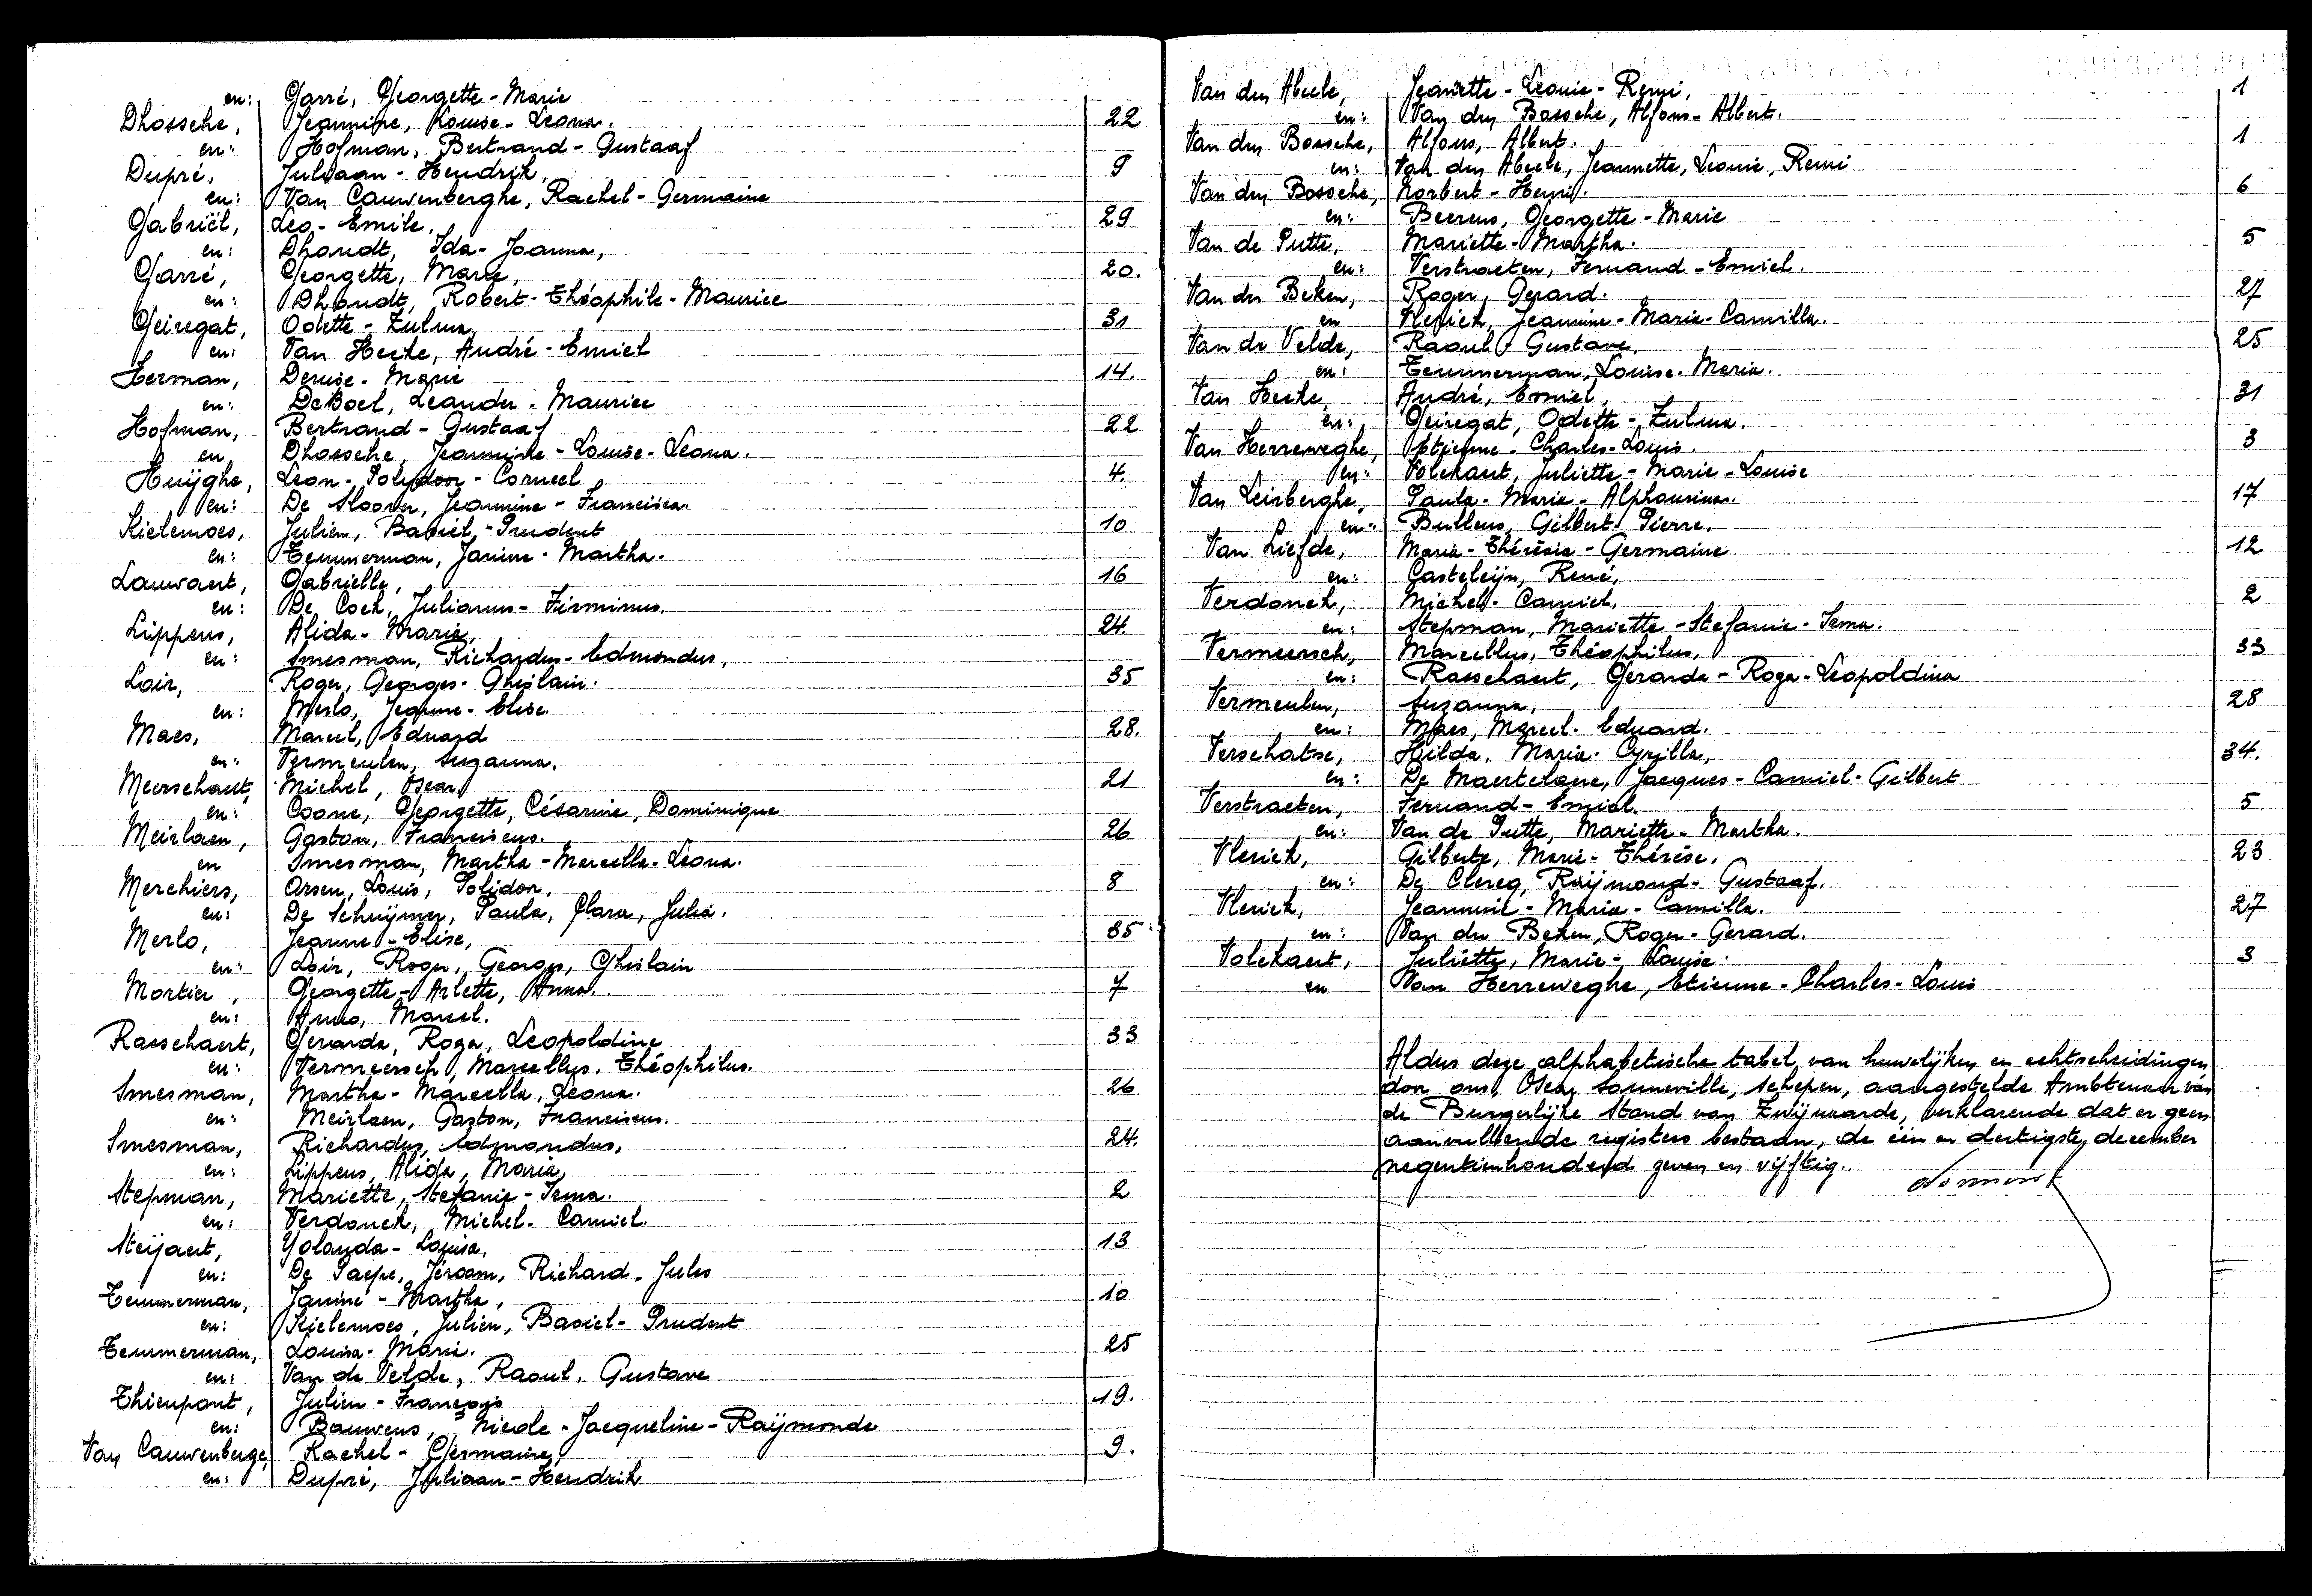 en: Garré, Georgette - Marie
Dhossche, Jeannine, Louise - Leona. 22
en: Hofman, Bertrand - Gustaaf
Dupré, Juliaan - Hendrik, 9
en: Van Cauwenberghe, Rachel - Germaine
Gabriël, Leo - Emile, 29
en: Dhondt, Ida - Joanna,
Garré, Georgette, Marie, 20.
en: Dhondt, Robert - Théophile - Maurice
Geiregat, Odette - Zulma, 31
en: Van Hecke, André - Emiel
Herman, Denise - Marie 14.
en: De Boel, Leander - Maurice
Hofman, Bertrand - Gustaaf 22
en, Dhossche, Jeannine - Louise - Leona.
Huÿghe, Leon - Polydoor - Corneel 4.
en: De Sloover, Jeannine - Francisca.
Kielemoes, Julien, Basiel, - Prudent 10
en: Temmerman, Janine - Martha.
Lauwaert, Gabrielle, 16
en: De Cock, Julianus - Firminus.
Lippens, Alida - Marie, 24.
en: Smesman, Richardus - Edmondus,
Loir, Roger, Georges - Ghislain. 35
en: Merlo, Jeanne - Elise.
Maes, Marcel, Eduard 28.
en: Vermeulen, Suzanna.
Meerschaut, Michel, Oscar, 21
en: Coone, Georgette, Césarine, Dominique
Meirlaen, Gaston, Franciscus. 26
en Smesman, Martha - Marcella - Leona.
Merchiers, Arsen, Louis, Polidor, 8
en: De Schuÿmer, Paula, Clara, Julia.
Merlo, Jeanne - Elise, 35
en: Loir, Roger, Georges, Ghislain
Mortier, Georgette - Arlette, Anna. 7
en: Marcel.
Rasschaert, Gerarda, Roga, Leopoldine 33
en: Vermeersch, Marcellus, Théophilus.
Smesman, Martha - Marcella, Leona. 26
en: Meirlaen, Gaston, Franciscus.
Smesman, Richardus, Edmondus, 24.
en: Lippens, Alida, Maria,
Stepman, Mariette, Stefanie - Irma. 2
en: Verdonck, Michel - Camiel.
Steÿaert, Yolanda - Louisa, 13
en: De Paepe, Jéroom, Richard - Jules
Temmerman, Janine - Martha, 10
en: Kielemoes, Julien, Basiel - Prudent
Temmerman, Louisa - Marie. 25
en: Van de Velde, Raoul, Gustave
Thienpont, Julien - François 19.
en: Bauwens, Nicole - Jacqueline - Raÿmonde
Van Cauwenberge, Rachel - Germaine, 9.
en: Dupré, Juliaan - Hendrik
Van den Abeele, Jeannette - Leonie - Remi, 1
en: Van den Bossche, Alfons - Albert.
Van den Bossche, Alfons, Albert. 1
en: Van den Abeele, Jeannette, Leonie, Remi
Van den Bossche, Norbert - Henri. 6
en: Beerens, Georgette - Marie
Van de Putte, Mariette - Martha. 5
en: Verstraeten, Fernand - Emiel.
Van der Beken, Roger, Gerard. 27
en Vlerick, Jeannine - Maria - Camilla.
Van de Velde, Raoul - Gustave, 25
en: Temmerman, Louise - Maria.
Van Hecke, André, Emiel, 31
en: Geiregat, Odette - Zulma.
Van Herreweghe, Etienne - Charles - Louis. 3
en: Volckaert, Juliette - Marie - Louise
Van Leirberghe, Paula - Maria - Alphonsina. 17
en: Bullens, Gilbert - Pierre.
Van Liefde, Maria - Thérèsia - Germaine 12
en: Casteleijn, René,
Verdonck, Michel - Camiel. 2
en: Stepman, Mariette - Stefanie - Irma.
Vermeersch, Marcellus, Théophilus, 33
en: Rasschaert, Gerarda - Roga - Leopoldina
Vermeulen, Suzanna, 28
en: Maes, Marcel - Eduard.
Verschatse, Hilda, Maria - Cyrilla, 34.
en: De Maertelaere, Jacques - Camiel - Gilbert
Verstraeten, Fernand - Emiel. 5
en: Van de Putte, Mariette - Martha.
Vlerick, Gilberte, Marie - Thérèse. 23
en: De Clercq, Raÿmond - Gustaaf.
Vlerick, Jeannine - Maria - Camilla. 27
en: Van der Beken, Roger - Gerard.
Volckaert, Juliette, Marie - Louise. 3
en Van Herreweghe, Etienne - Charles - Louis
Aldus deze alphabetische tabel van huwelijken en echtscheidingen
door ons, Oscar Sonneville, Schepen, aangestelde Ambtenaar van
de Burgerlijke Stand van Zwijnaarde, verklarende dat er geen
aanvullende registers bestaan, de één en dertigste december
negentienhonderd zeven en vijftig.